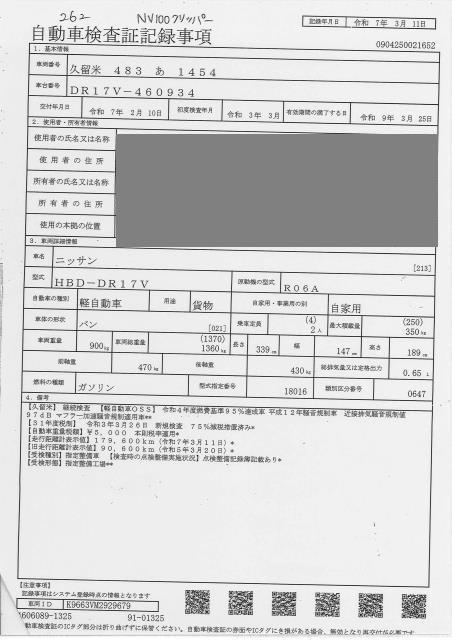 262 NV100クリッパー
自動車検査証記録事項
記録年月日 令和 7年 3月 11日
0904250021652
1. 基本情報
車両番号 久留米 483 あ 1454
車台番号 DR17V-460934
交付年月日 令和 7年 2月 10日 初度検査年月 令和 3年 3月 有効期間の満了する日 令和 9年 3月 25日
2. 使用者・所有者情報
使用者の氏名又は名称
使用者の住所
所有者の氏名又は名称
所有者の住所
使用の本拠の位置
3. 車両詳細情報
車名 ニッサン [213]
型式 HBD-DR17V 原動機の型式 R06A
自動車の種別 軽自動車 用途 貨物 自家用・事業用の別 自家用
車体の形状 バン [021] 乗車定員 (4) 2人 最大積載量 (250) 350kg
車両重量 900kg 車両総重量 (1370) 1360kg 長さ 339cm 幅 147cm 高さ 189cm
前軸重 470kg 後軸重 430kg 総排気量又は定格出力 0.65 L
燃料の種類 ガソリン 型式指定番号 18016 類別区分番号 0647
4. 備考
【久留米】 継続検査 【軽自動車OSS】 令和4年度燃費基準95%達成車 平成12年騒音規制車 近接排気騒音規制値
97dB マフラー加速騒音規制適用車**
【31年度税制】 令和3年3月26日 新規検査 75%減税措置済み*
【自動車重量税額】 ¥5,000 本則税率適用*
【走行距離計表示値】 179,600km (令和7年3月11日) *
【旧走行距離計表示値】 90,600km (令和5年3月20日) *
【受検種別】 指定整備車 【検査時の点検整備実施状況】 点検整備記録簿記載あり*
【受検形態】 指定整備工場**
【注意事項】
記録事項はシステム登録時点の情報となります
車両ID K9663VM2929679
606089-1325 91-01325
動車検査証のICタグ部分は折り曲げずに保管ください。自動車検査証の券面やICタグにき損がある場合、無効となり再交付が必要です